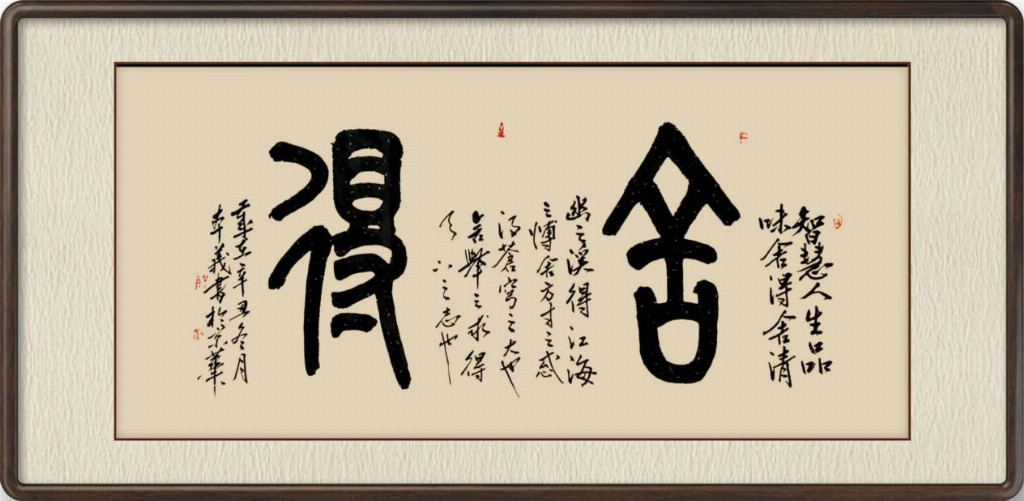 智慧人生品
味舍得舍清
舍
幽之溪得江海
之博舍方寸之惑
得蒼穹之大也
舍之求得
天下之志也
得
歲在辛丑冬月
義書於京華